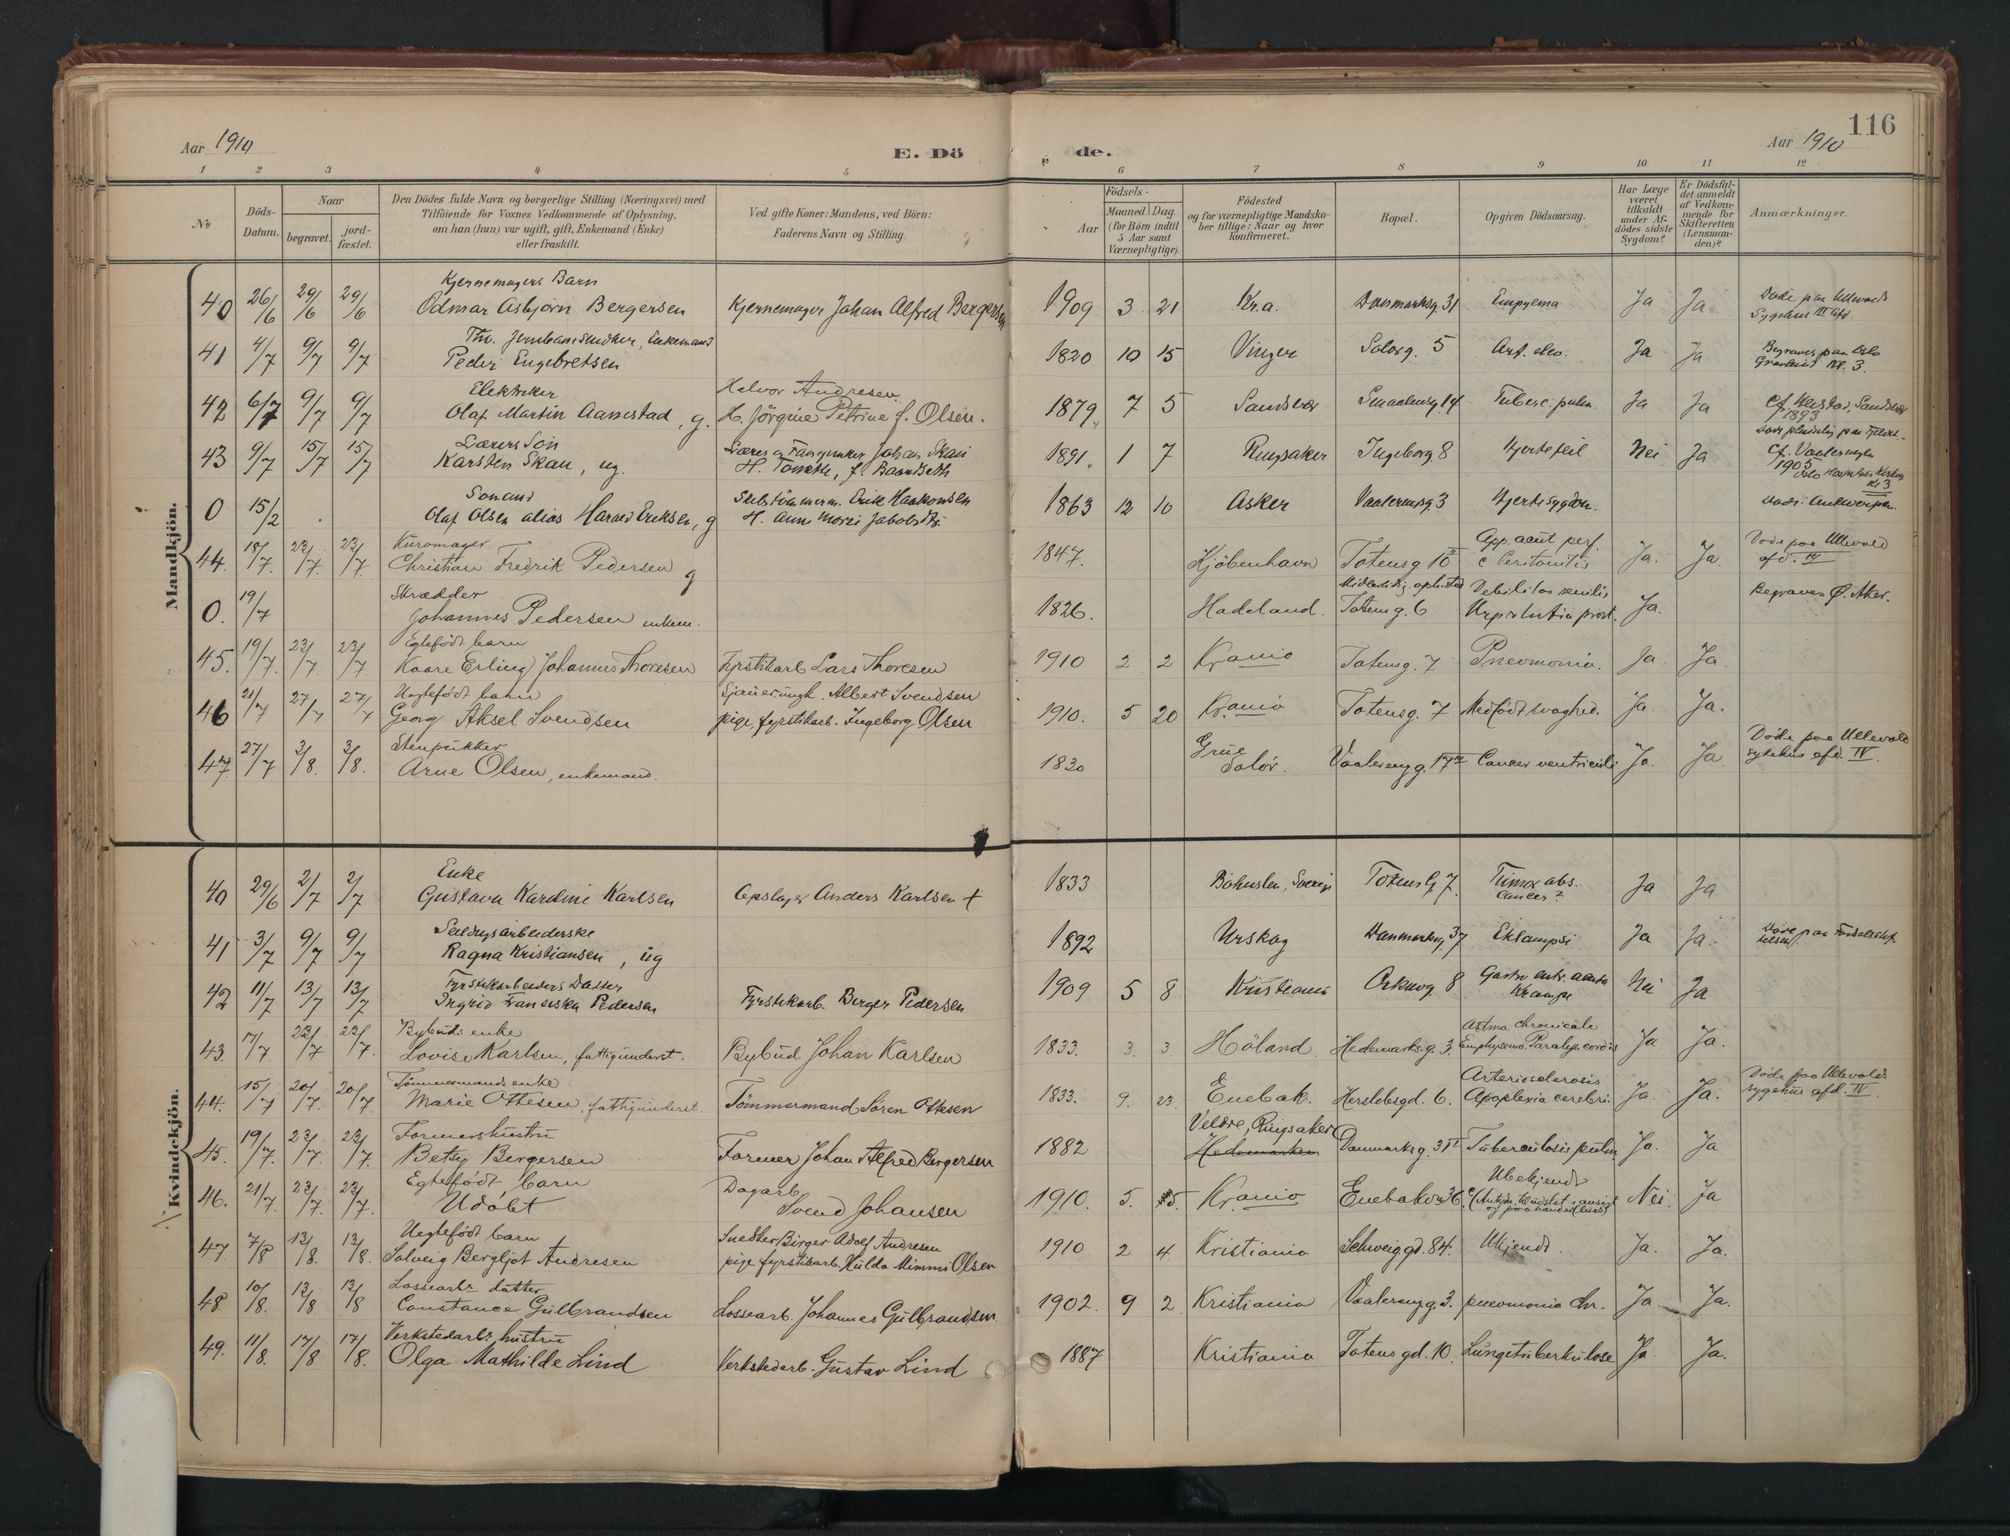 116
Aar 1910
E. Dö
de.
Aar 1910
1 2 3 4 5 6 7 8 9 10 11 12
No
Döds-
Datum.
Naar
begravet.
jord-
fæstet.
Den Dödes fulde Navn og borgerlige Stilling (Næringsvei) med
Tilföiende for Voxnes Vedkommende af Oplysning,
om han (hun) var ugift, gift, Enkemand (Enke)
eller fraskilt.
Ved gifte Koner: Mandens, ved Börn:
Faderens Navn og Stilling.
Födsels-
Aar
Maaned
Dag.
(for Börn indtil
5 Aar samt
Værnepligtige).
Födested
og for værnepligtige Mandska-
ber tillige: Naar og hvor
konfirmeret.
Bopæl.
Opgiven Dödsaarsag.
Har Læge
været
tilkaldt
under Af-
dödes sidste
Sygdom?
Er Dödsfal-
det anmeldt
af Vedkom-
mende for
Skifteretten
(Lensman-
den)?
Anmærkninger.
Mandkjön.
Kjernemagers Barn
40 26/6 29/6 29/6 Odmar Asbjørn Bergersen Kjernemager Johan Alfred Bergersen 1909 3 21 Kr.a. Danmarksg. 31 Empyema Ja Ja Døde paa Ullevaals
Sygehus III afd
Enkemand
41 4/7 9/7 9/7 Peder Engebretsen 1820 10 15 Vinger Solørg. 5 Art. Ja Ja Begraves paa Oslo
Elektriker Halvor Andresen
42 6/7 9/7 9/7 Olaf Martin Aamestad, g. H. Jörgine Petrine f. Olsen. 1879 7 5 Sandsvær Smaalensg 14 Tuberc. pulm. Ja Ja
1893
Lærers Søn
43 9/7 15/7 15/7 Karsten Skau, ug. Johan Skau 1891. 1 7 Ringsaker Ingeborg 8 Hjertefeil Nei Ja
Sømand
0 15/2 Olaf Olsen alias Harald Eriksen, g Skibstömmerm. Erik Haakonsen
H. Anne 1863 12 10 Asker Vaalerensg. 3 Hjertesygdom. Døde i Antwerpen.
Kurvmager
44. 18/7 23/7 23/7 Christian Fredrik Pedersen g 1847. Kjöbenhavn Totensg 10 II App. acut perf.
c Peritonitis Ja. Ja. Döde paa Ullevold
afd. IV
Skrædder
0. 19/7 Johannes Pedersen enkem. 1826. Hadeland. Totensg. 6 Debilitas senilis
Ja. Begraves Ø. Aker.
Egtefödt barn
45. 19/7 23/7 23/7 Kaare Erling Johannes Thoresen Fyrstikarb Lars Thoresen 1910 2 2 Kr.ania Totensg. 7 Pneomonia. Ja Ja.
Uegtefödt barn
46 21/7 27/7 27/7 Georg Aksel Svendsen Albert Svendsen
pige, fyrstikarb. Ingeborg Olsen 1910. 5 20 Kr.ania Totensg. 7 Medfödt svaghed. Ja. Ja.
Stenpukker
47 27/7 3/8. 3/8. Arne Olsen, enkemand. 1830 Grue
Solör. Vaalerengg. 17 IV Cancer ventriculi Ja. Ja. Döde paa Ullevold
sykehus afd. IV.
Kvindekjön.
Enke
40 29/6 2/7 2/7 Gustava Karoline Karlsen Opslager Anders Karlsen † 1833 Bohuslen, Sverige Totensg 7. Tumor abs.
Cancer? Ja Ja
41 3/7 9/7 9/7 Ragna Kristiansen, ug 1892 Urskog Danmarksg 37 Eklampsi Ja Ja. Døde paa Fødselsstif-
telsen
Fyrstikarbeiders Datter
42 11/7 13/7 13/7 Ingrid Franciska Pedersen Fyrstikarb. Berger Pedersen 1909 5 8 Kristiania 8 Gastro entr. acuta
Krampe Nei Ja
Bybuds enke
43. 17/7 23/7 23/7. Lovise Karlsen, fattigunderst. Bybud Johan Karlsen 1833. 3. 3. Höland. Hedemarksg. 3. Astma chronicale
Emphysema. Paralys. cordis Ja Ja.
Tömmermands enke
44. 15/7 20/7. 20/7 Marie Ottesen, fattigunderst. Tömmermand Sören Ottesen 1833. 9. 23. Enebak. Herslebsgd. 6. Arteriosclerosis
Apoplexia cerebri. Ja. Ja. Döde paa Ullevolds
sygehus afd. IV
Formerhustru
45. 19/7. 23/7. 23/7 Betsy Bergersen Former Johan Alfred Bergersen 1882 Veldre, Ringsaker
Hedemarken Danmarksg. 31 II Tuberculosis pulm. Ja. Ja
Egtefödt barn
46. 21/7 23/7. 23/7. Udöbt Dagarb.
Svend Johansen 1910. 5. 5. Kr.ania Enebakv. 36. Ubekjendt
Nei. Ja
Uegtefödt barn
47. 7/8 13/8. 13/8. Solveig Bergljot Andresen Snedker Birger Adolf Andresen
pige fyrstikarb. Hulda Mimmi Olsen 1910 2 4 Kristiania Schweiggd. 84. Ukjendt Ja. Ja.
Lossearb. datter
48. 10/8. 13/8 13/8 Constance Gulbrandsen Lossearb. Johannes Gulbrandsen 1902. 9 2 Kristiania Vaalerengg. 3. pneumonia chr. Ja Ja.
Verkstedarb. hustru
49. 11/8. 17/8 17/8. Olga Mathilde Lind Verkstedarb. Gustav Lind 1887 Kristiania Totensgd. 10. Lungetuberkulose Ja Ja.